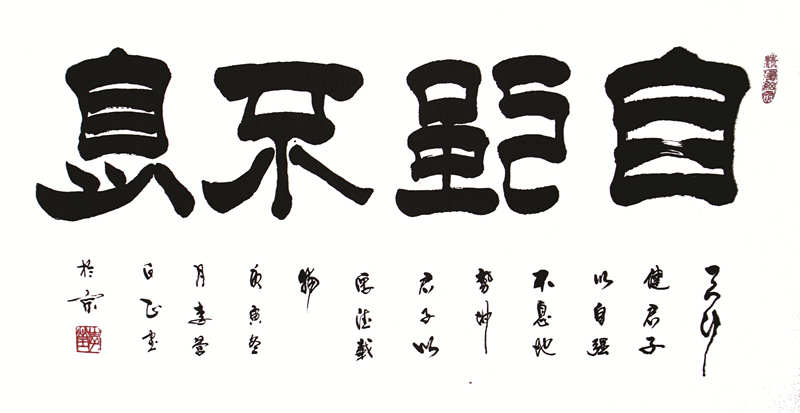 自强不息
天行
健君子
以自强
不息地
勢坤
君子以
厚德載
物
庚寅冬
月李
於京